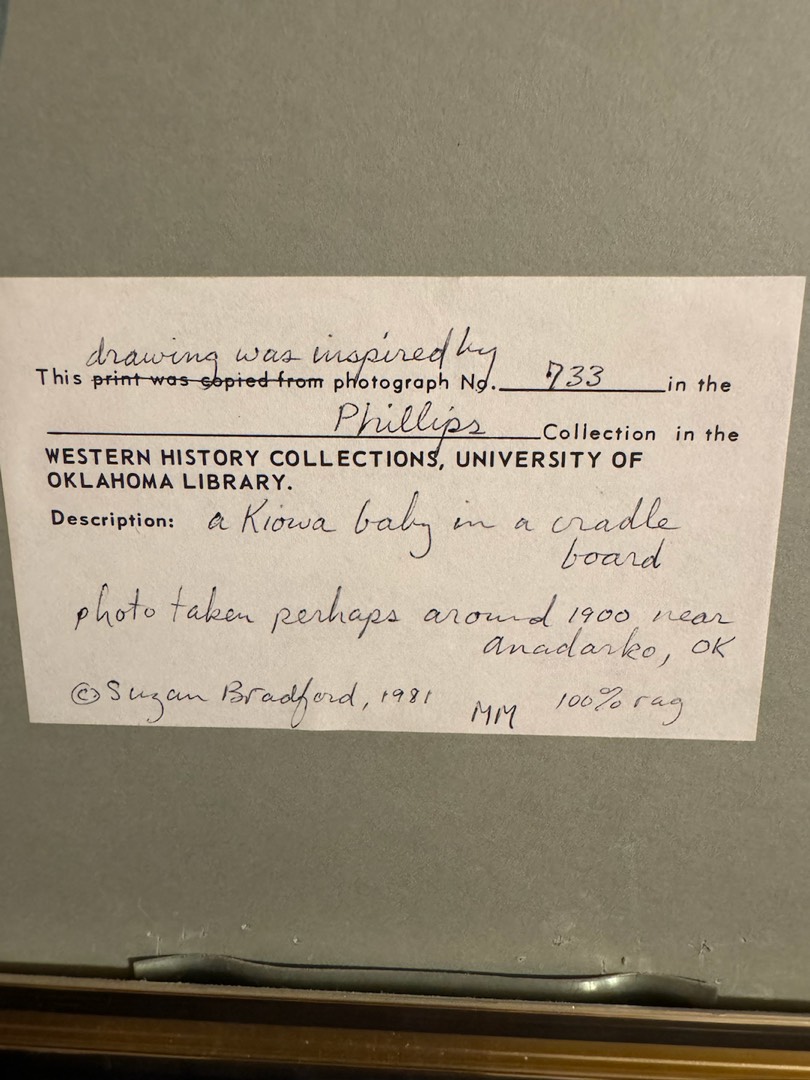 drawing was inspired by
This print was copied from photograph No. 733 in the
Phillips Collection in the
WESTERN HISTORY COLLECTIONS, UNIVERSITY OF
OKLAHOMA LIBRARY.
Description: a Kiowa baby in a cradle
board
photo taken perhaps around 1900 near
Anadarko, OK
© Suzan Bradford, 1981 MM 100% rag